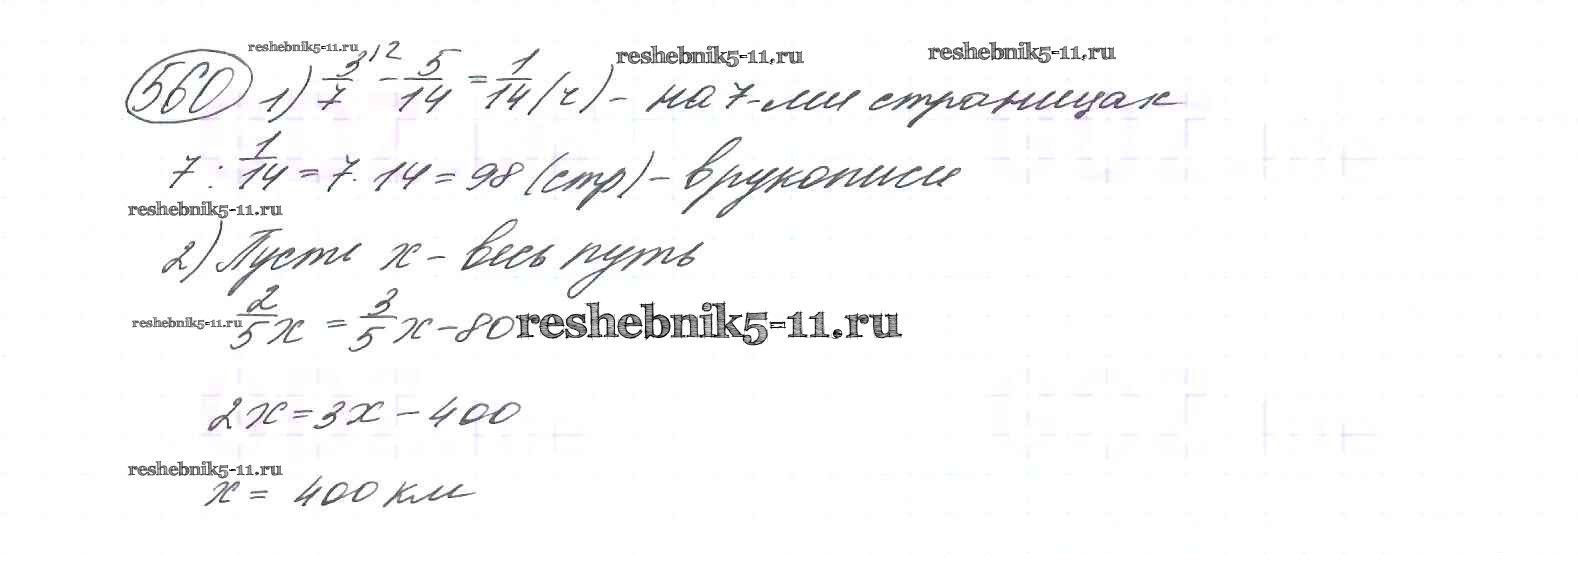 reshebnik5-11.ru reshebnik5-11.ru reshebnik5-11.ru
560 1) 3/7 |2 - 5/14 = 1/14 (ч) - на 7-ми страницах
7 : 1/14 = 7 · 14 = 98 (стр) - в рукописи
reshebnik5-11.ru
2) Пусть x - весь путь
reshebnik5-11.ru 2/5 x = 3/5 x - 80 reshebnik5-11.ru
2x = 3x - 400
reshebnik5-11.ru
x = 400 км